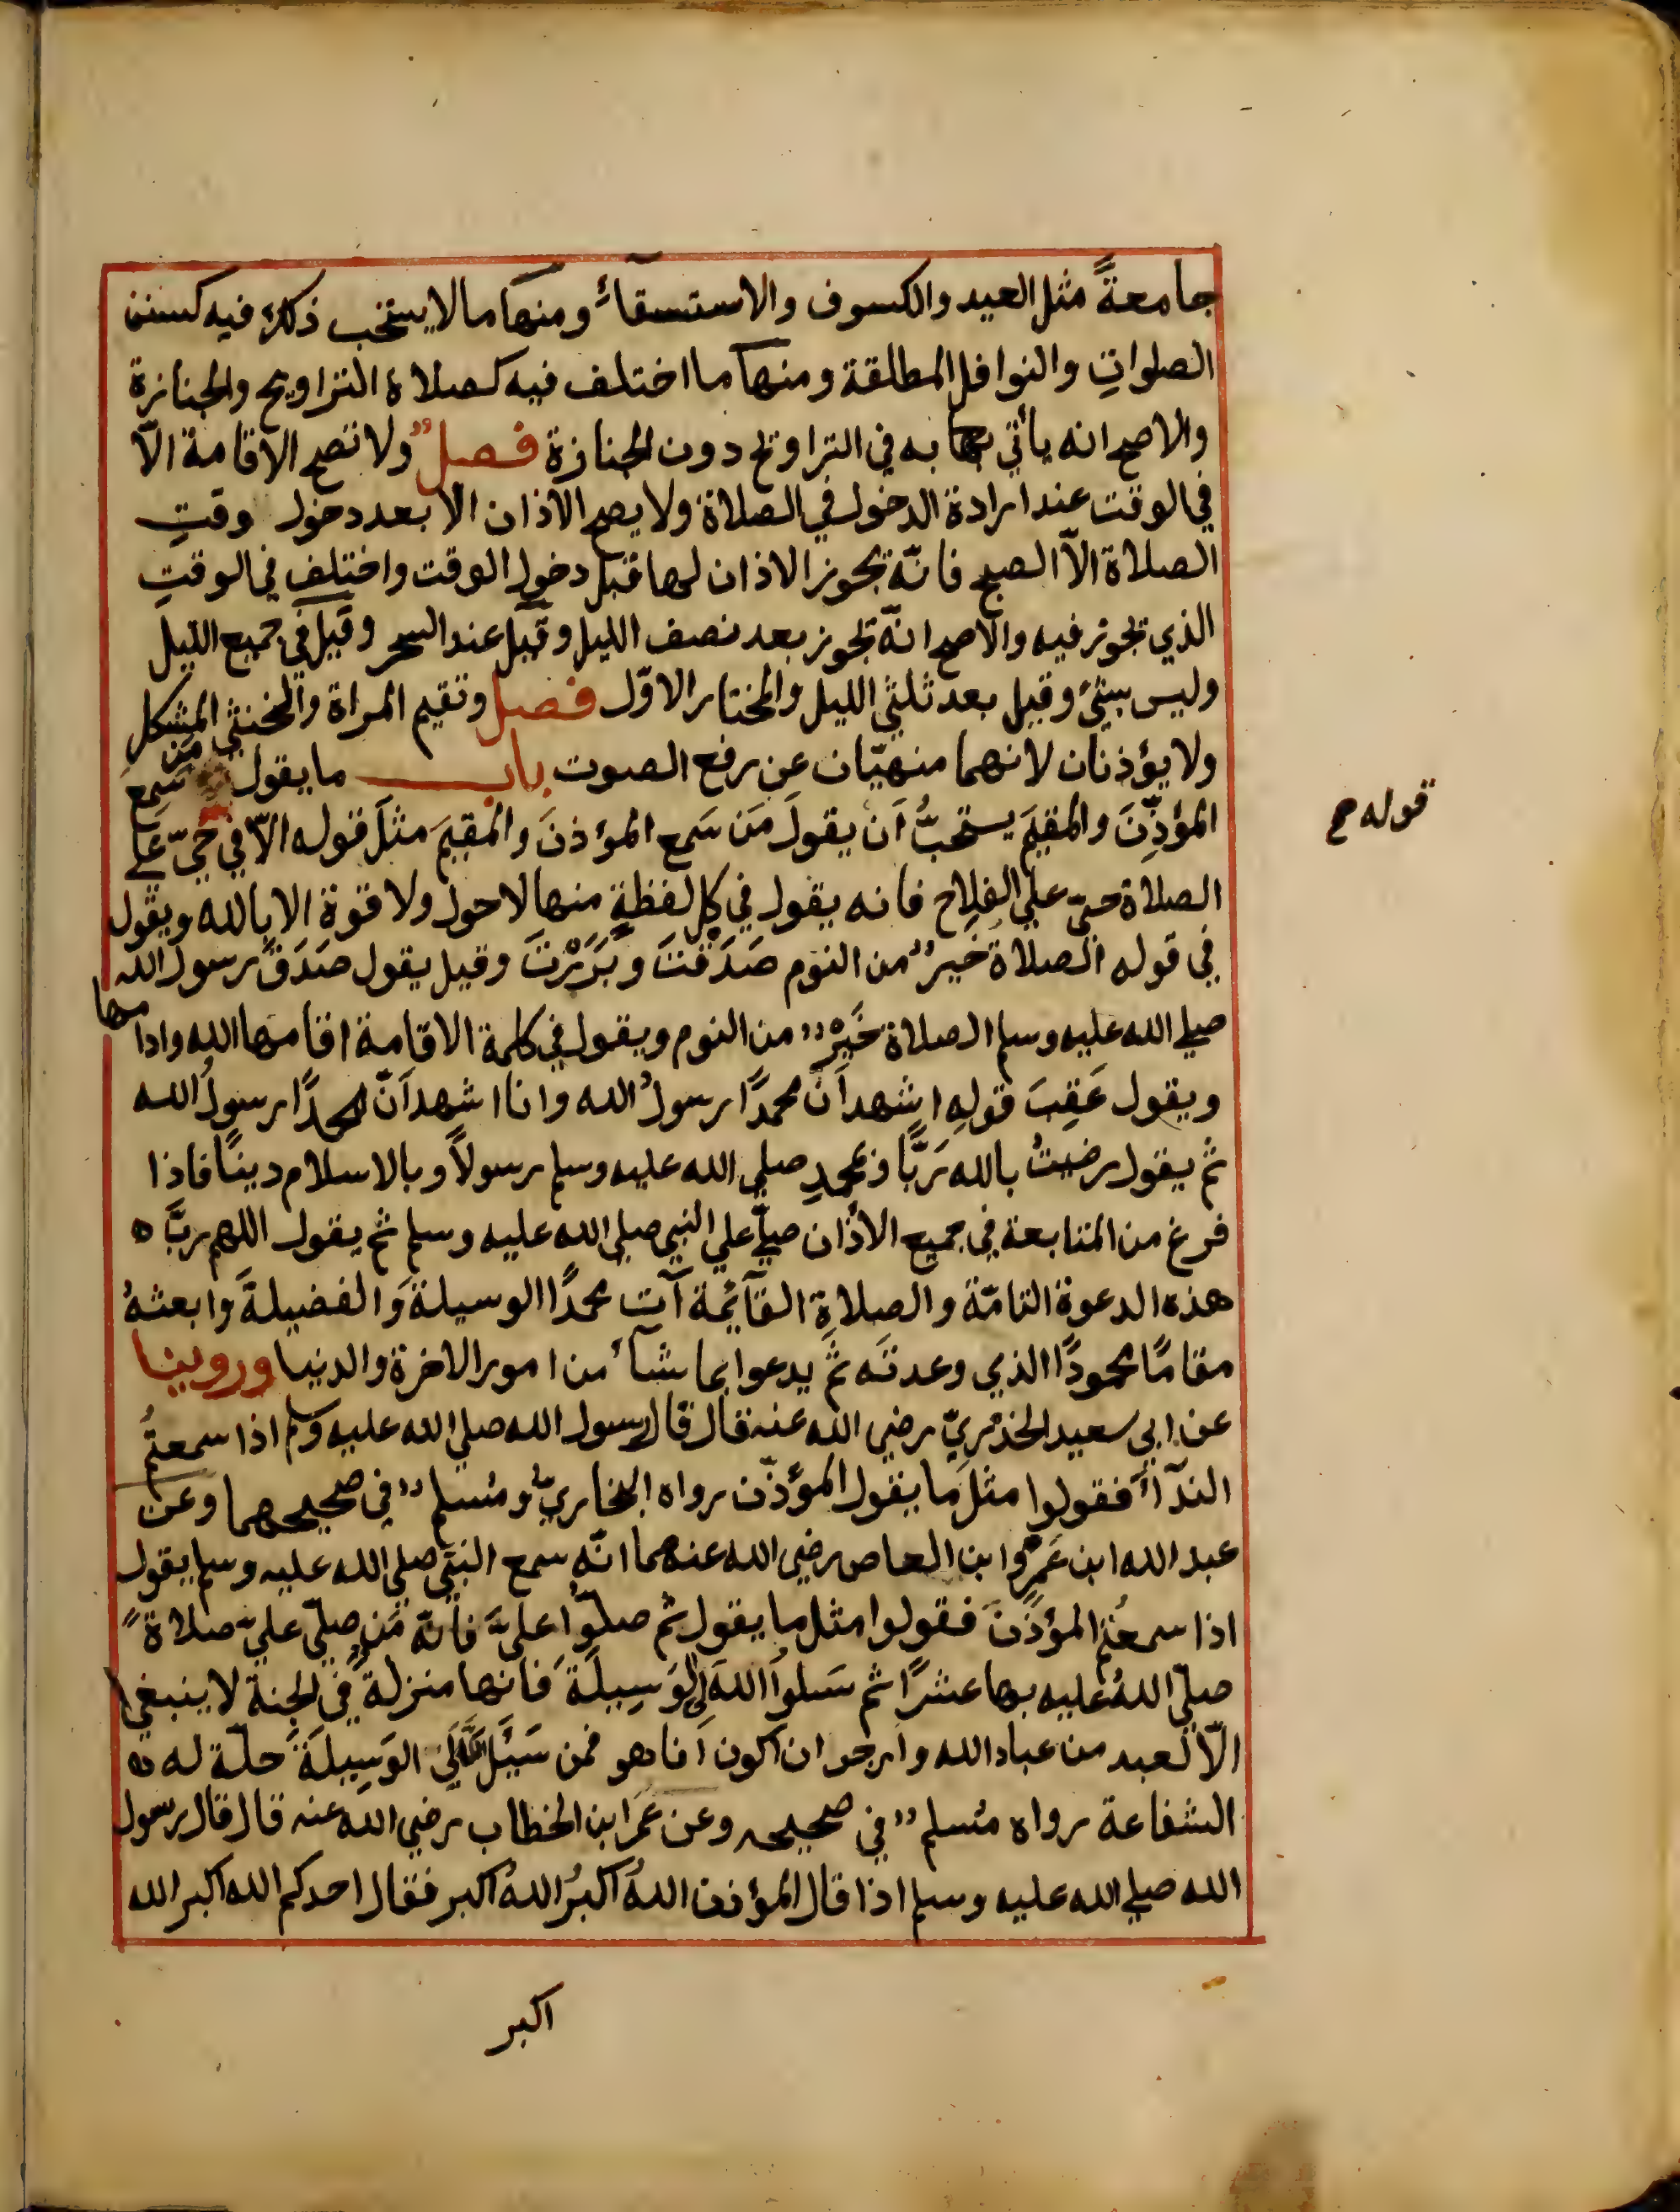 جامعةً مثل العيد والكسوف والاستسقآء ومنها ما لا يستحب ذكره فيه كسنن
الصلواتِ والنوافل المطلقة ومنها ما اختلف فيه كصلاة التراويح والجنازة
والاصح انه يأتي به في التراويح دون الجنازة فصلٌ ولا تصح الاقامة الّا
في الوقت عند ارادة الدخول في الصلاة ولا يصح الاذان الا بعد دخول وقتِ
الصلاة الّا الصبح فانّه يجوز الاذان لها قبل دخول الوقت واختلف في الوقتِ
الذي يجوز فيه والاصح انّه يجوز بعد نصف الليل وقيل عند السحر وقيل في جميع الليل
وليس بشئ وقيل بعد ثلثي الليل والمختار الاوّل فصل وتقيم المراة والخنثي المشكل
ولا يؤذنان لانهما منهيّان عن رفع الصوت باب ما يقول من سَمِعَ
المؤذّنَ والمقيمَ يستحبُّ اَن يقولَ مَن سَمع المؤذنَ والمقيمَ مثلَ قوله الّا في حيّ عَلي
الصلاة حيّ علي الفلاح فانه يقول في كل لفظةٍ منها لا حول ولا قوة الا بالله ويقول
في قوله الصلاة خيرٌ من النوم صَدَقتَ وبَرَرْتَ وقيل يقول صَدَقَ رسول الله
صلي الله عليه وسلم الصلاة خَيْرٌ من النوم ويقول في كلمة الاقامة اقامها الله وادامها
ويقول عَقِبَ قولِه اشهد اَنّ محمدًا رسولُ الله وانا اشهد اَنّ محمدًا رسولُ الله
ثم يقول رضيتُ بالله رَبًّا وبمحمدٍ صلي الله عليه وسلم رسولاً وبالاسلام دينًا فاذا
فرغ من المتابعة في جميع الاذان صلّي علي النبي صلي الله عليه وسلم ثم يقول اللهم ربَّ ه
هذه الدعوة التامّة والصلاةِ القآئمة آتِ محمدًا الوسيلةَ والفضيلةَ وابعثهُ
مقامًا محمودًا الذي وعدتَه ثمّ يدعوا بما شآء من امور الاخرة والدنيا وروينا
عن ابي سعيد الخدريّ رضي الله عنه قال قال رسول الله صلي الله عليه وسلم اذا سمعتُم
الندآء فقولوا مثلَ ما يقول المؤذّن رواه البخاريّ ومُسلمٌ في صحيحهما وعن
عبد الله ابن عَمرٍو ابن العاص رضي الله عنهما انّه سمع النبيّ صلي الله عليه وسلم يقول
اذا سمعتُم المؤذّنَ فقولوا مثل ما يقول ثم صلّوا عليّ فانّه مَن صلّي عليّ صلاةً
صلّي اللهُ عليه بها عشرًا ثم سَلوا اللهَ لِي الوَسِيلَةَ فانها منزلةٌ في الجنة لا ينبغي
الّا لعبد من عباد الله وارجو ان اكون اَنا هو فمن سَئَلَ لِي الوَسِيلَةَ حلّت له
الشفاعة رواه مُسلمٌ في صحيحه وعن عمَر ابن الخطاب رضي الله عنه قال قال رسول
الله صلي الله عليه وسلم اذا قال المؤذن اللهُ اكبرُ اللهُ اكبر فقال احدكم الله اكبر الله
اكبر
قوله صح